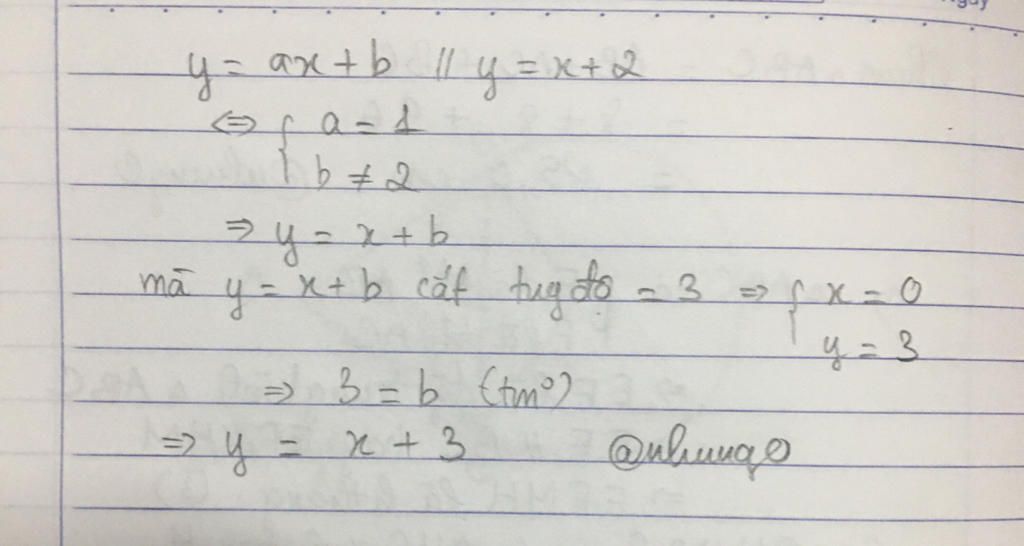 y = ax + b // y = x + 2
⇔ { a = 1
b ≠ 2
⇒ y = x + b
mà y = x + b cắt tugđộ = 3 ⇒ { x = 0
y = 3
⇒ 3 = b (tm)
⇒ y = x + 3 @nhung